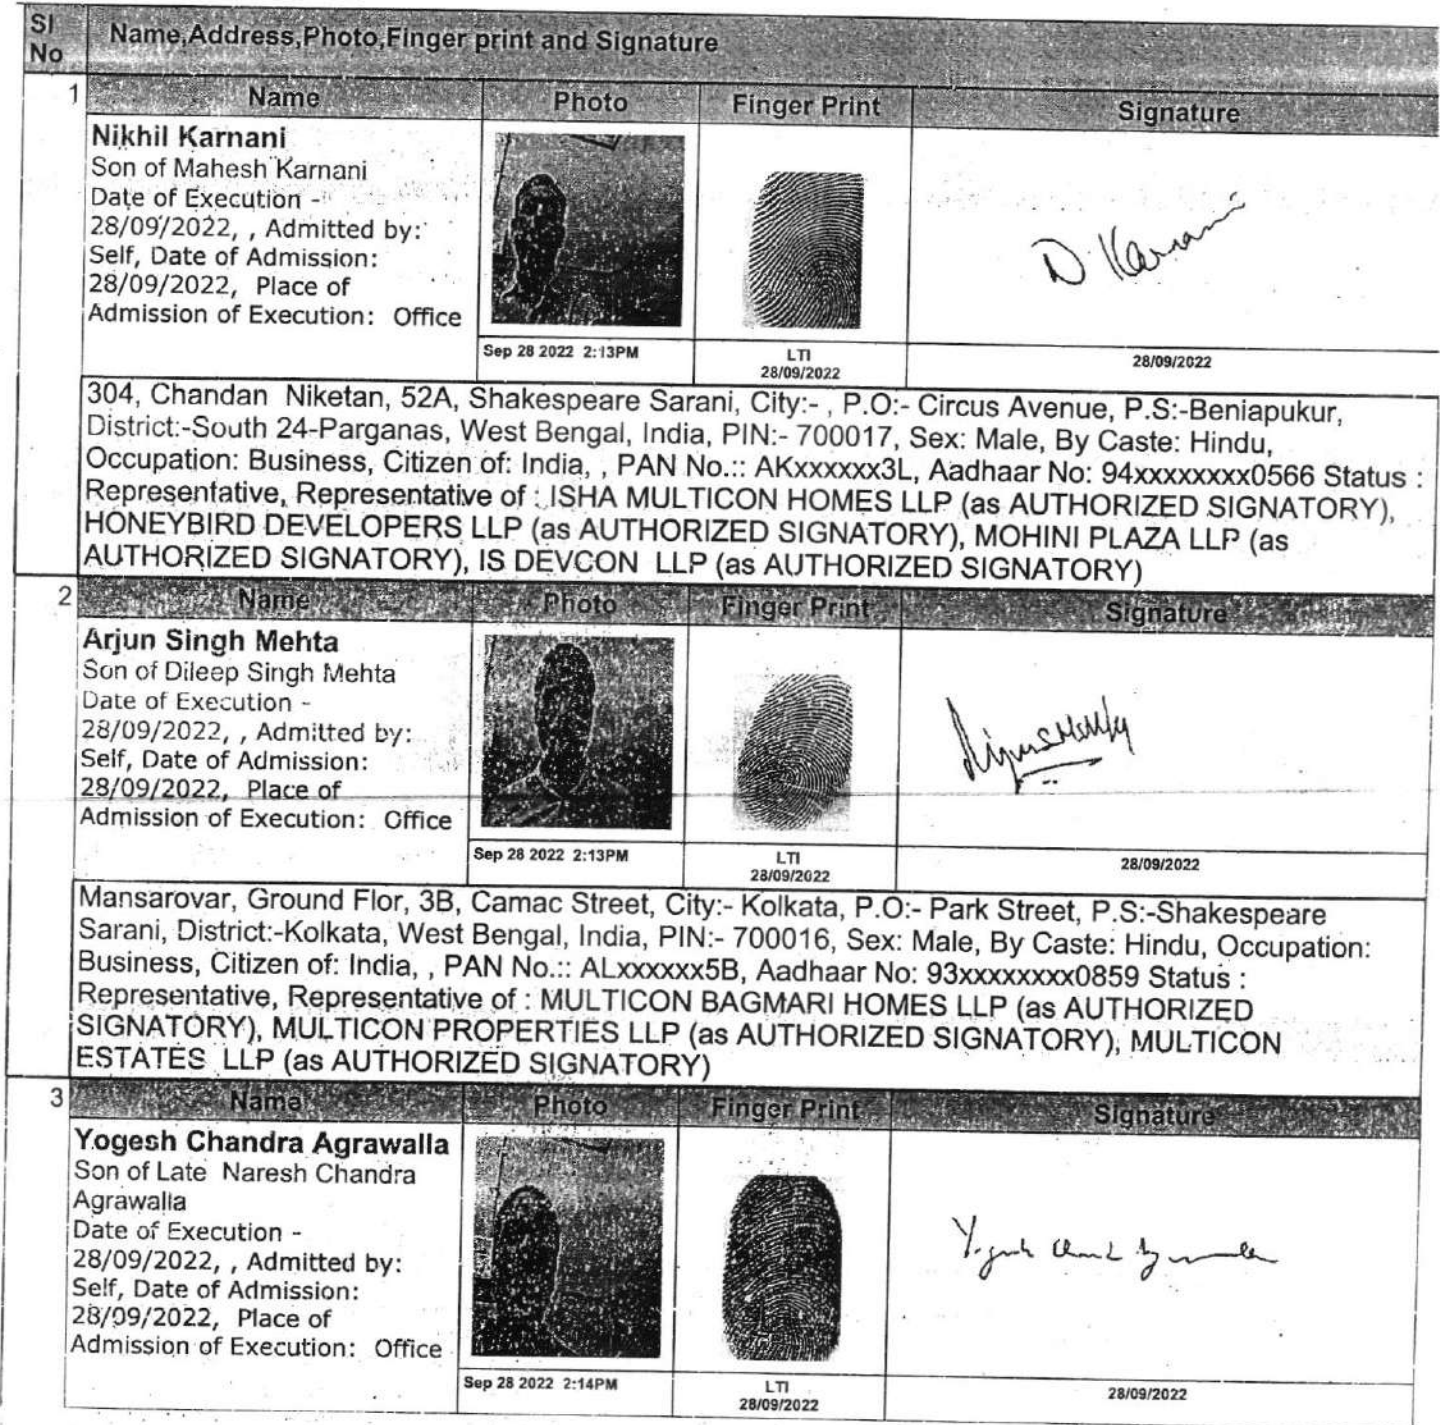 Sl No
Name,Address,Photo,Finger print and Signature
1
Name Photo Finger Print Signature
Nikhil Karnani
Son of Mahesh Karnani
Date of Execution -
28/09/2022, , Admitted by:
Self, Date of Admission:
28/09/2022, Place of
Admission of Execution: Office
D Karnani
Sep 28 2022 2:13PM
LTI
28/09/2022
28/09/2022
304, Chandan Niketan, 52A, Shakespeare Sarani, City:- , P.O:- Circus Avenue, P.S:-Beniapukur,
District:-South 24-Parganas, West Bengal, India, PIN:- 700017, Sex: Male, By Caste: Hindu,
Occupation: Business, Citizen of: India, , PAN No.:: AKxxxxxx3L, Aadhaar No: 94xxxxxxxx0566 Status :
Representative, Representative of : ISHA MULTICON HOMES LLP (as AUTHORIZED SIGNATORY),
HONEYBIRD DEVELOPERS LLP (as AUTHORIZED SIGNATORY), MOHINI PLAZA LLP (as
AUTHORIZED SIGNATORY), IS DEVCON LLP (as AUTHORIZED SIGNATORY)
2
Name Photo Finger Print Signature
Arjun Singh Mehta
Son of Dileep Singh Mehta
Date of Execution -
28/09/2022, , Admitted by:
Self, Date of Admission:
28/09/2022, Place of
Admission of Execution: Office
Sep 28 2022 2:13PM
LTI
28/09/2022
28/09/2022
Mansarovar, Ground Flor, 3B, Camac Street, City:- Kolkata, P.O:- Park Street, P.S:-Shakespeare
Sarani, District:-Kolkata, West Bengal, India, PIN:- 700016, Sex: Male, By Caste: Hindu, Occupation:
Business, Citizen of: India, , PAN No.:: ALxxxxxx5B, Aadhaar No: 93xxxxxxxx0859 Status :
Representative, Representative of : MULTICON BAGMARI HOMES LLP (as AUTHORIZED
SIGNATORY), MULTICON PROPERTIES LLP (as AUTHORIZED SIGNATORY), MULTICON
ESTATES LLP (as AUTHORIZED SIGNATORY)
3
Name Photo Finger Print Signature
Yogesh Chandra Agrawalla
Son of Late Naresh Chandra
Agrawalla
Date of Execution -
28/09/2022, , Admitted by:
Self, Date of Admission:
28/09/2022, Place of
Admission of Execution: Office
Sep 28 2022 2:14PM
LTI
28/09/2022
28/09/2022